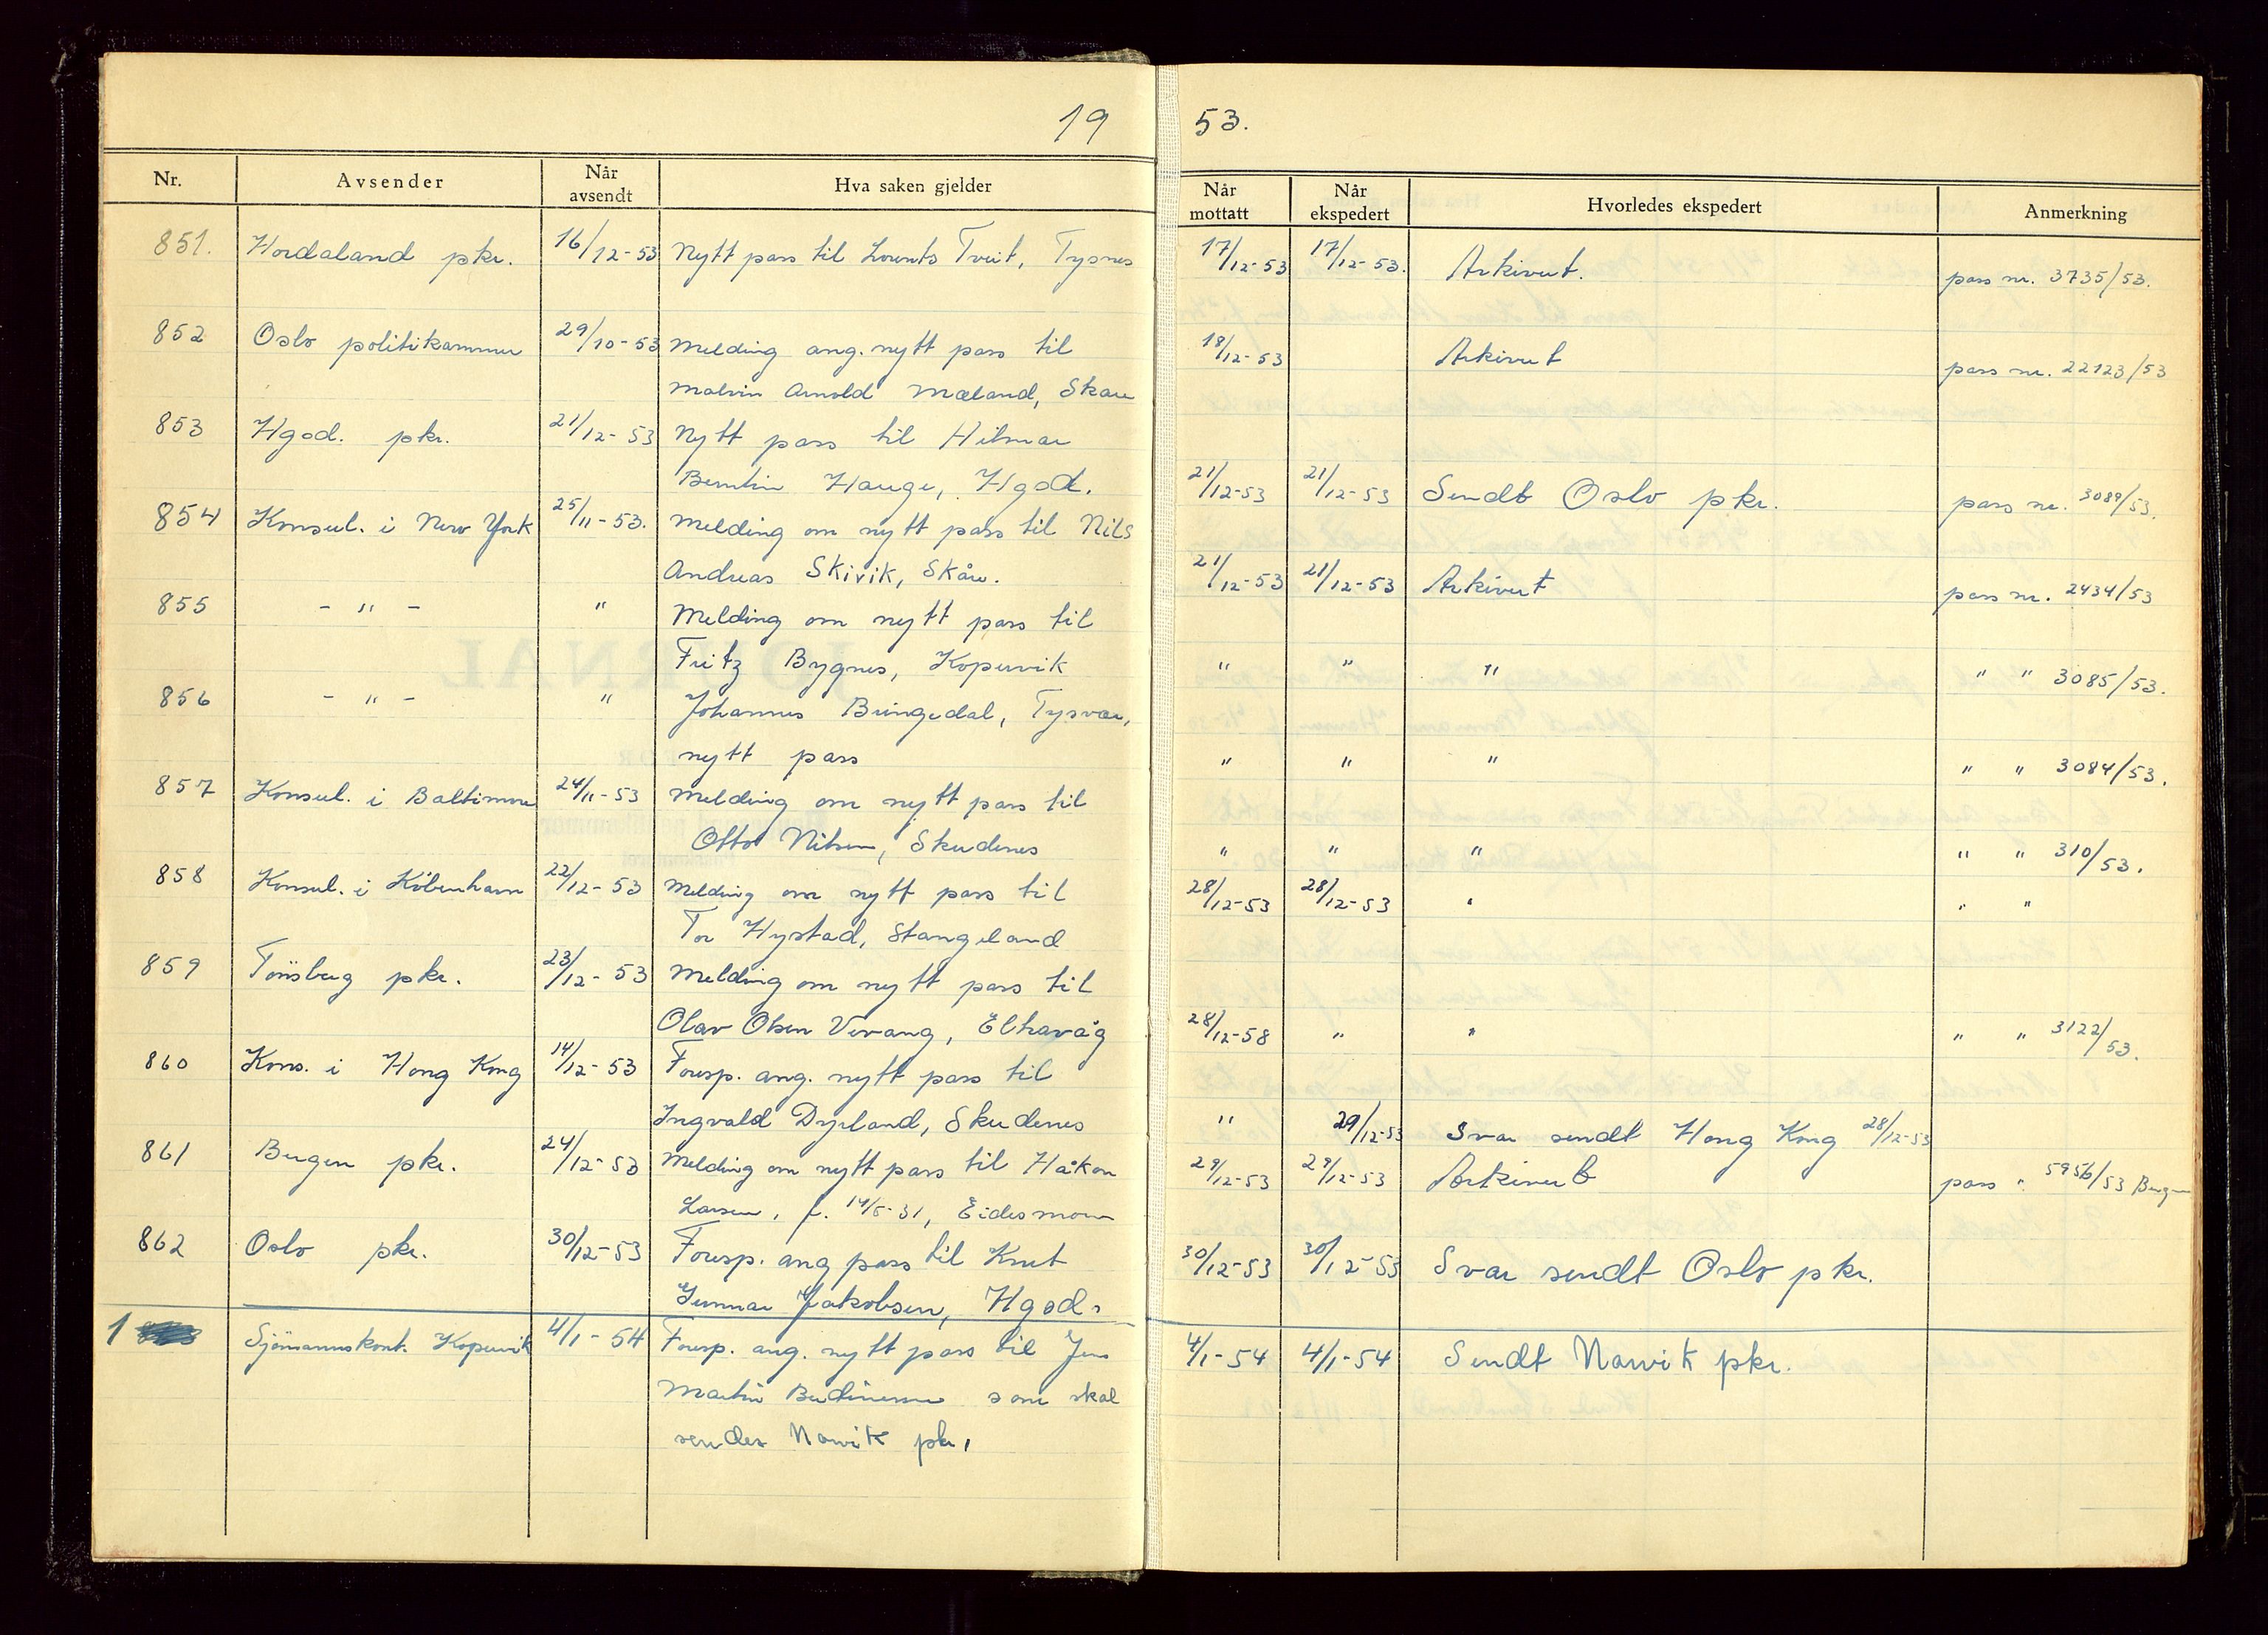 19 53.
Nr. Avsender Når avsendt Hva saken gjelder Når mottatt Når ekspedert Hvorledes ekspedert Anmerkning
851. Hordaland pkr. 16/12-53 Nytt pass til Lorents Tveit, Tysnes 17/12-53 17/12-53. Arkivert. pass nr. 3735/53.
852 Oslo politikammer 29/10-53 Melding ang. nytt pass til 18/12-53 Arkivert pass nr. 22123/53
Malvin Arnold Mæland, Skåre
853 Hgsd. pkr. 21/12-53 Nytt pass til Hilmar
Berntin Hauge, Hgsd. 21/12-53 21/12-53 Sendt Oslo pkr. pass nr. 3089/53.
854 Konsul. i New York 25/11-53. Melding om nytt pass til Nils
Andreas Skivik, Skåre. 21/12-53 21/12-53 Arkivert pass nr. 2434/53
855 - " - " Melding om nytt pass til
Fritz Bygnes, Kopervik " " " " " 3085/53.
856 - " - " Johannes Bringedal, Tysvær,
nytt pass " " " " " 3084/53.
857 Konsul. i Baltimore 24/11-53 Melding om nytt pass til
Otto Nilsen, Skudenes " " " " " 310/53.
858 Konsul. i Köbenhavn 22/12-53 Melding om nytt pass til 28/12-53 28/12-53 " " "
Tor Hystad, Stangeland
859 Tönsberg pkr. 23/12-53 Melding om nytt pass til
Olav Olsen Vevang, Elhavåg 28/12-58 " " " " 3122/53.
860 Kons. i Hong Kong 14/12-53 Foresp. ang. nytt pass til
Ingvald Dyrland, Skudenes " 29/12-53 Svar sendt Hong Kong 28/12-53
861 Bergen pkr. 24/12-53 Melding om nytt pass til Håkon 29/12-53 29/12-53 Arkivert pass " 5956/53 Bergen
Larsen, f. 14/5-31, Eidesmoen
862 Oslo pkr. 30/12-53 Foresp. ang pass til Knut 30/12-53 30/12-53 Svar sendt Oslo pkr.
Gunnar Jakobsen, Hgsd.
1 Sjömannskont. Kopervik 4/1-54 Foresp. ang. nytt pass til Jens 4/1-54 4/1-54 Sendt Narvik pkr.
Martin som skal
sendes Narvik pkr.